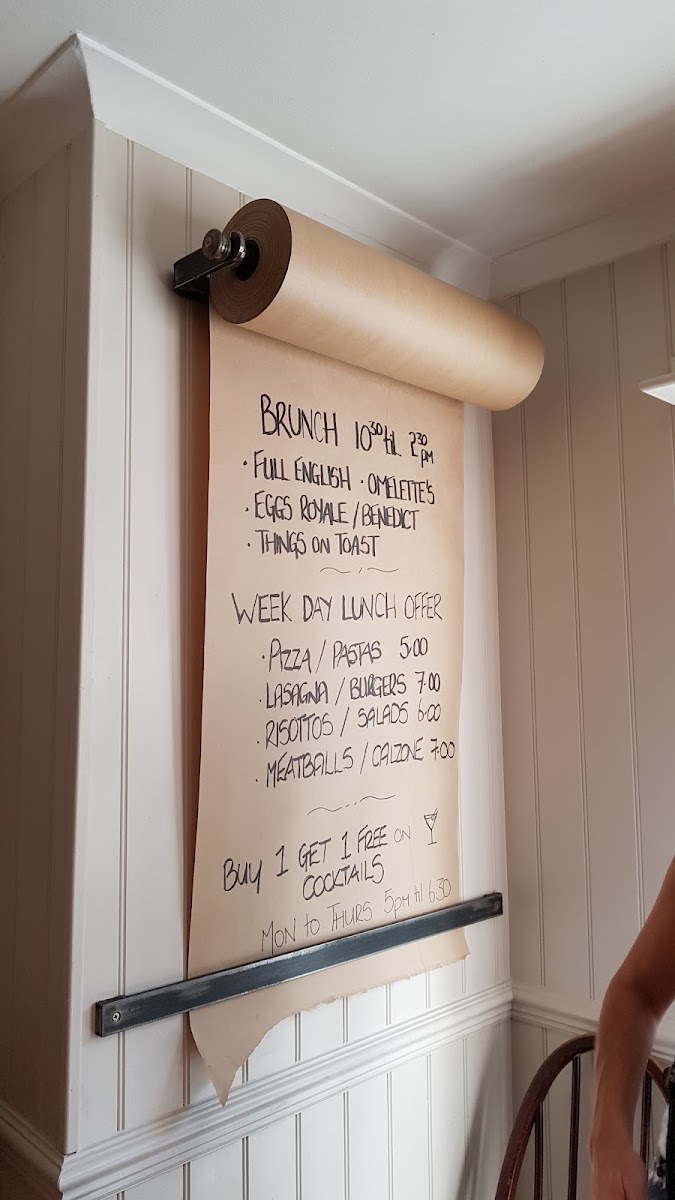 BRUNCH 10 30 til 2 30 PM
· FULL ENGLISH · OMELETTE'S
· EGGS ROYALE / BENEDICT
· THINGS ON TOAST
WEEK DAY LUNCH OFFER
· PIZZA / PASTAS 5.00
· LASAGNA / BURGERS 7.00
· RISOTTOS / SALADS 6.00
· MEATBALLS / CALZONE 7.00
BUY 1 GET 1 FREE ON
COCKTAILS
MON to THURS 5pm til 6 30